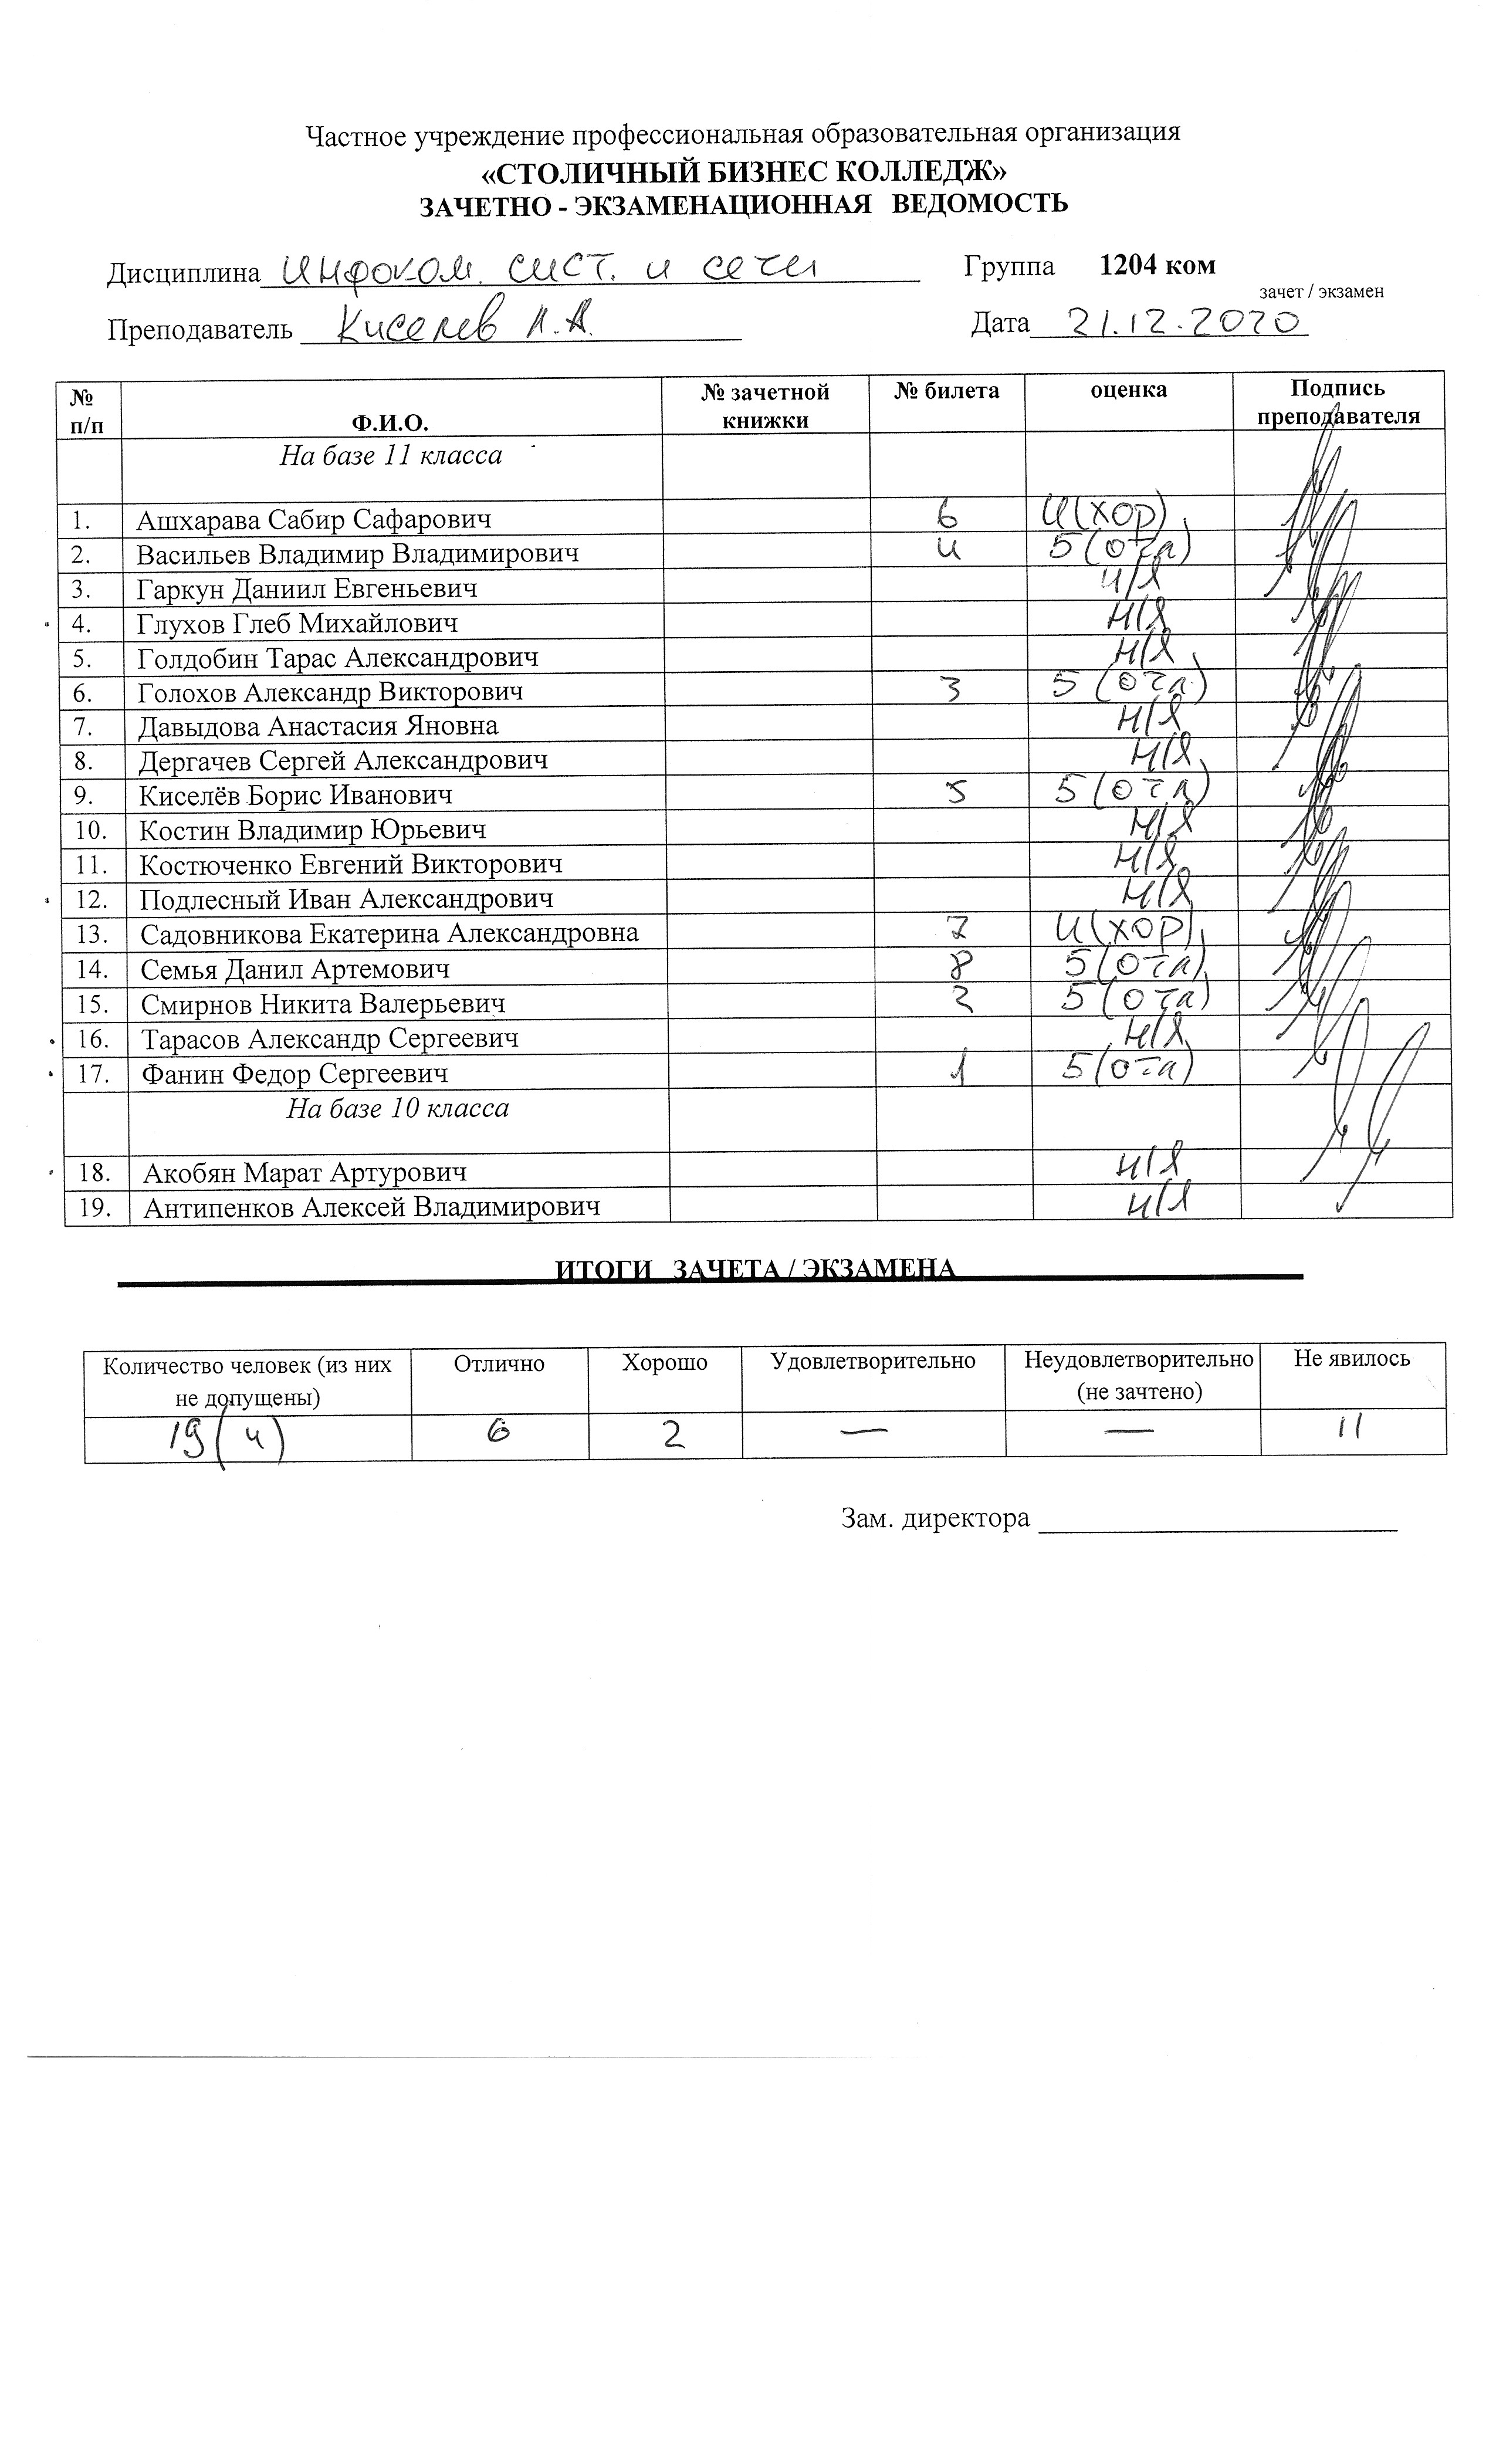 Частное учреждение профессиональная образовательная организация
«СТОЛИЧНЫЙ БИЗНЕС КОЛЛЕДЖ»
ЗАЧЕТНО - ЭКЗАМЕНАЦИОННАЯ ВЕДОМОСТЬ
Дисциплина инфоком. сист. и сети Группа 1204 ком
зачет / экзамен
Преподаватель Киселев А. Дата 21.12.2020
№ п/п Ф.И.О. № зачетной книжки № билета оценка Подпись преподавателя
На базе 11 класса
1. Ашхарава Сабир Сафарович 6 4(хор)
2. Васильев Владимир Владимирович 4 5(отл)
3. Гаркун Даниил Евгеньевич н/я
4. Глухов Глеб Михайлович н/я
5. Голдобин Тарас Александрович н/я
6. Голохов Александр Викторович 3 5(отл)
7. Давыдова Анастасия Яновна н/я
8. Дергачев Сергей Александрович н/я
9. Киселёв Борис Иванович 5 5(отл)
10. Костин Владимир Юрьевич н/я
11. Костюченко Евгений Викторович н/я
12. Подлесный Иван Александрович н/я
13. Садовникова Екатерина Александровна 7 4(хор)
14. Семья Данил Артемович 8 5(отл)
15. Смирнов Никита Валерьевич 2 5(отл)
16. Тарасов Александр Сергеевич н/я
17. Фанин Федор Сергеевич 1 5(отл)
На базе 10 класса
18. Акобян Марат Артурович н/я
19. Антипенков Алексей Владимирович н/я
ИТОГИ ЗАЧЕТА / ЭКЗАМЕНА
Количество человек (из них не допущены) Отлично Хорошо Удовлетворительно Неудовлетворительно (не зачтено) Не явилось
19(4) 6 2 — — 11
Зам. директора